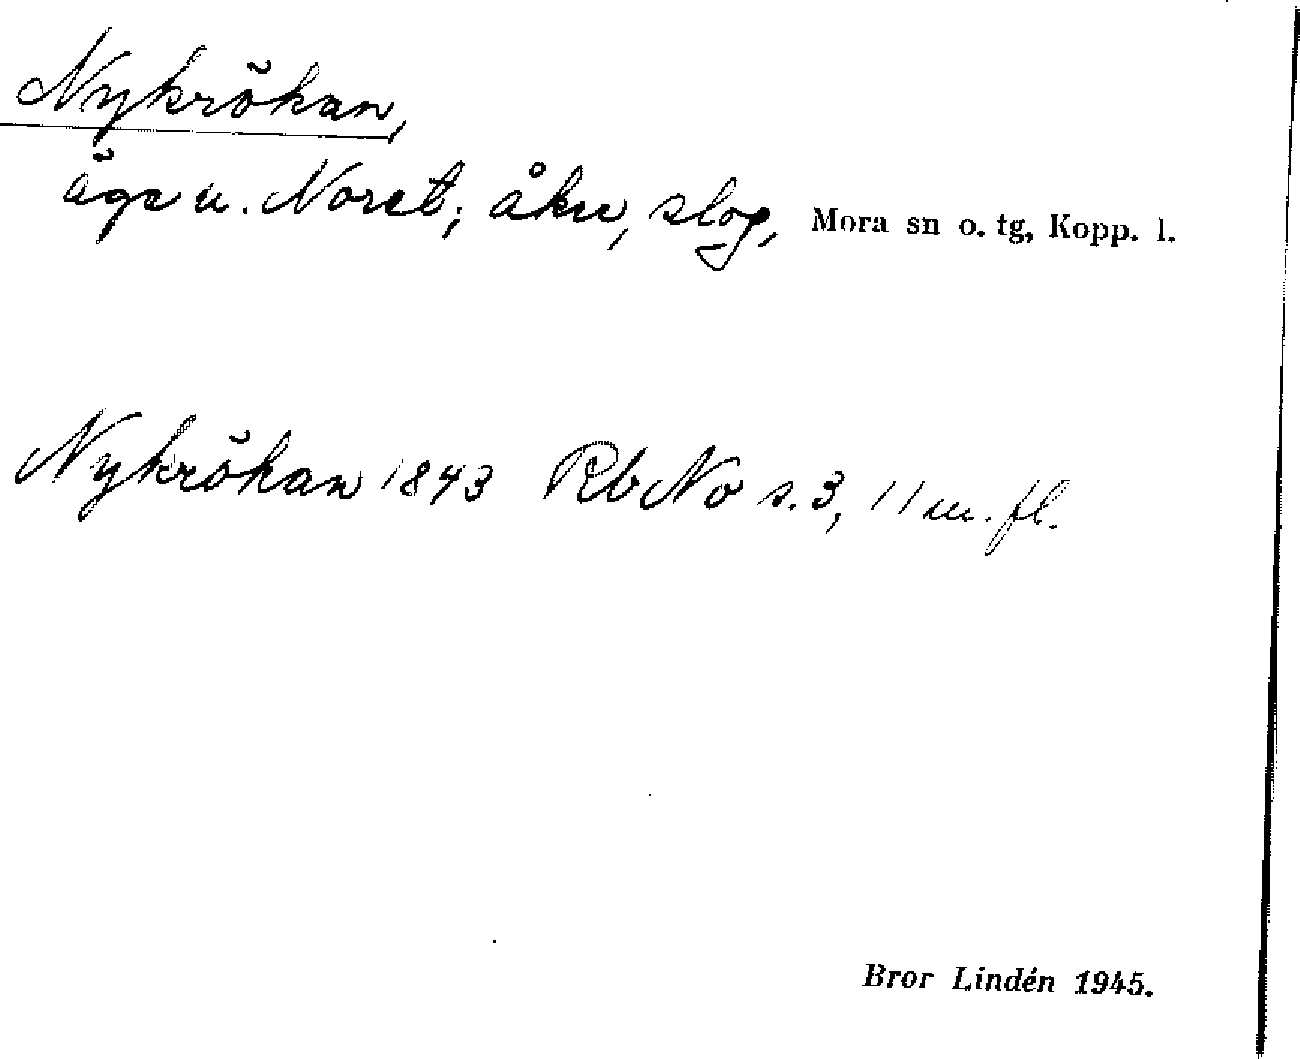 Nykrökan,
äge u. Noret; åker, slog, Mora sn o. tg, Kopp. l.
Nykrökan 1843 Rb No s. 3, 11 m. fl.
Bror Lindén 1945.